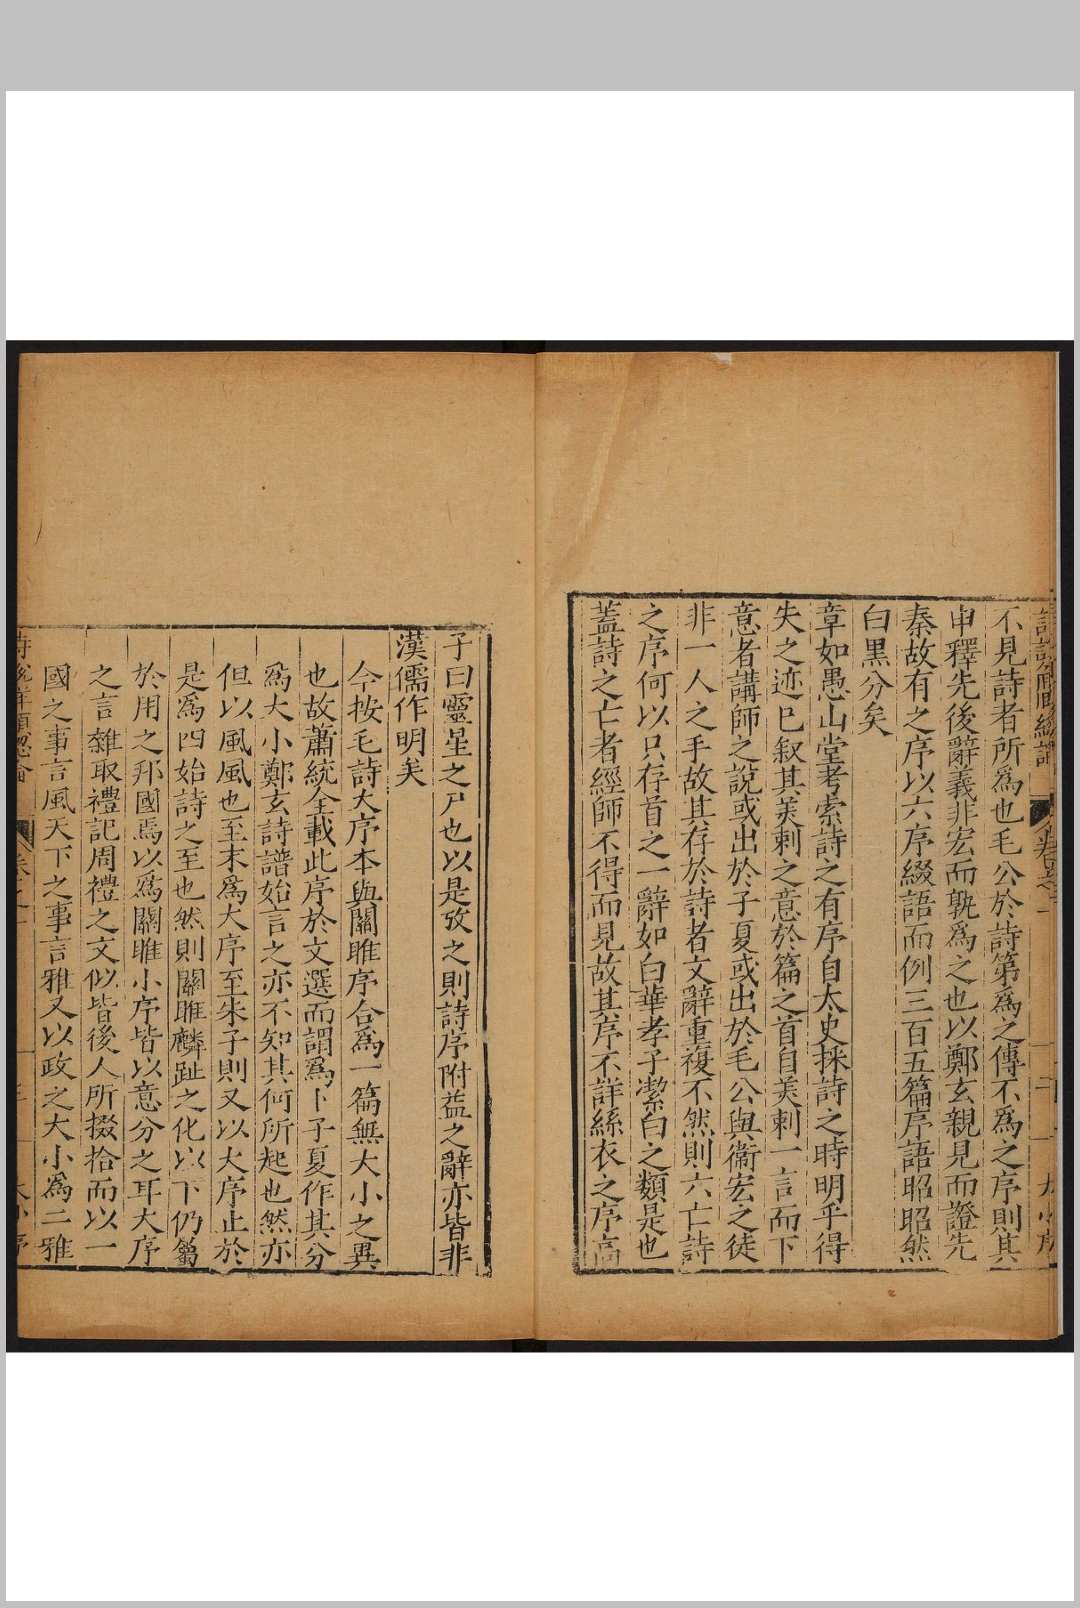 不見詩者所爲也毛公於詩第爲之傳不爲之序則其
申釋先後辭義非宏而孰爲之也以鄭玄親見而證先
秦故有之序以六序綴語而例三百五篇序語昭昭然
白黑分矣
章如愚山堂考索詩之有序自太史採詩之時明乎得
失之迹已叙其美刺之意於篇之首自美刺一言而下
意者講師之說或出於子夏或出於毛公與衞宏之徒
非一人之手故其存於詩者文辭重複不然則六亡詩
之序何以只存首之一辭如白華孝子潔白之類是也
蓋詩之亡者經師不得而見故其序不詳絲衣之序高
子曰靈星之尸也以是攷之則詩序附益之辭亦皆非
漢儒作明矣
今按毛詩大序本與關雎序合爲一篇無大小之異
也故蕭統全載此序於文選而謂爲卜子夏作其分
爲大小鄭玄詩譜始言之亦不知其何所起也然亦
但以風風也至末爲大序至朱子則又以大序止於
是爲四始詩之至也然則關雎麟趾之化以下仍屬
於用之邦國焉以爲關雎小序皆以意分之耳大序
之言雜取禮記周禮之文似皆後人所掇拾而以一
國之事言風天下之事言雅又以政之大小爲二雅